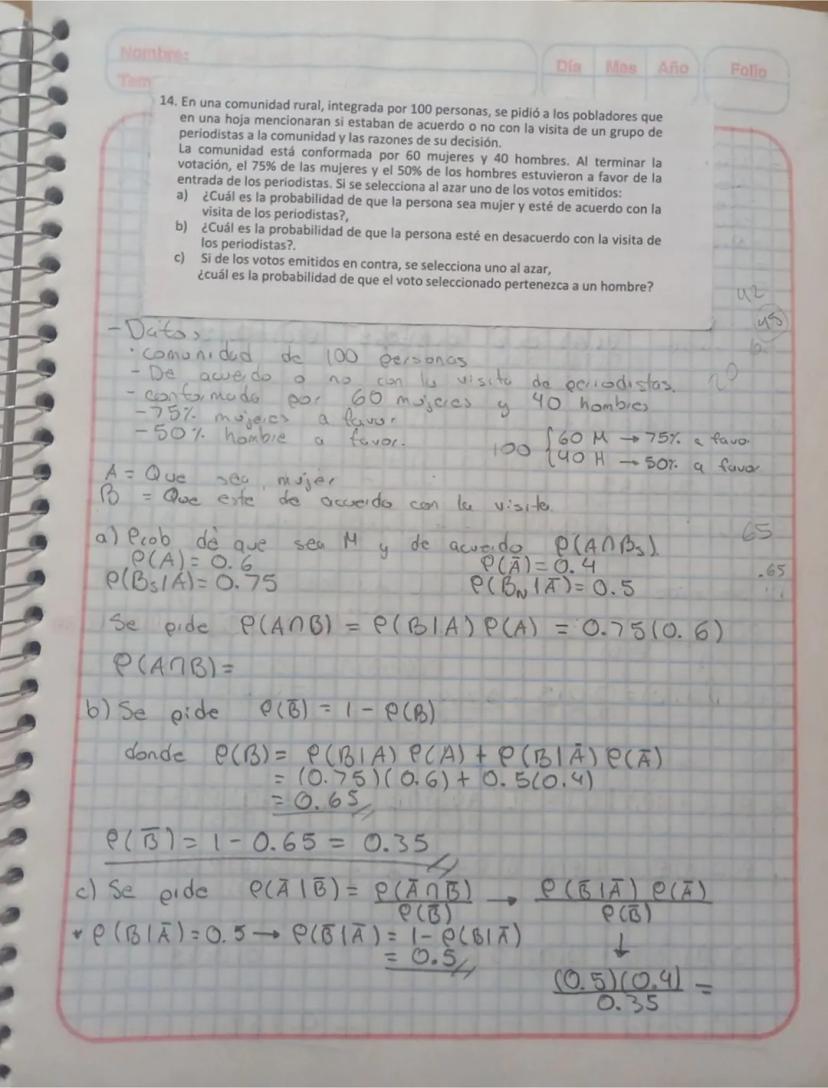 Nombre:
Día Mes Año Folio
Tem
14. En una comunidad rural, integrada por 100 personas, se pidió a los pobladores que
en una hoja mencionaran si estaban de acuerdo o no con la visita de un grupo de
periodistas a la comunidad y las razones de su decisión.
La comunidad está conformada por 60 mujeres y 40 hombres. Al terminar la
votación, el 75% de las mujeres y el 50% de los hombres estuvieron a favor de la
entrada de los periodistas. Si se selecciona al azar uno de los votos emitidos:
a) ¿Cuál es la probabilidad de que la persona sea mujer y esté de acuerdo con la
visita de los periodistas?,
b) ¿Cuál es la probabilidad de que la persona esté en desacuerdo con la visita de
los periodistas?.
c) Si de los votos emitidos en contra, se selecciona uno al azar,
¿cuál es la probabilidad de que el voto seleccionado pertenezca a un hombre?
42
45
- Datos
· comunidad de 100 personas
- De acuerdo o no con la visita de periodistas.
- conformada por 60 mujeres y 40 hombres
- 75% mujeres a favor
- 50% hombre a favor.
100 { 60 M → 75% a favo.
{ 40 H → 50% a favor
A = Que sea mujer
B = Que este de acuerdo con la visita.
a) Prob de que sea M y de acuerdo P(A∩Bs). 65
P(A) = 0.6 P(Ā) = 0.4 .65
P(Bs|A) = 0.75 P(BN|Ā) = 0.5
Se pide P(A∩B) = P(B|A) P(A) = 0.75(0.6)
P(A∩B) =
b) Se pide P(B̄) = 1 - P(B)
donde P(B) = P(B|A) P(A) + P(B|Ā) P(Ā)
= (0.75)(0.6) + 0.5(0.4)
= 0.65
P(B̄) = 1 - 0.65 = 0.35
c) Se pide P(Ā|B̄) = P(Ā∩B̄)/P(B̄) → P(B̄|Ā) P(Ā)/P(B̄)
* P(B|Ā) = 0.5 → P(B̄|Ā) = 1 - P(B|Ā) ↓
= 0.5
(0.5)(0.4)/0.35 =